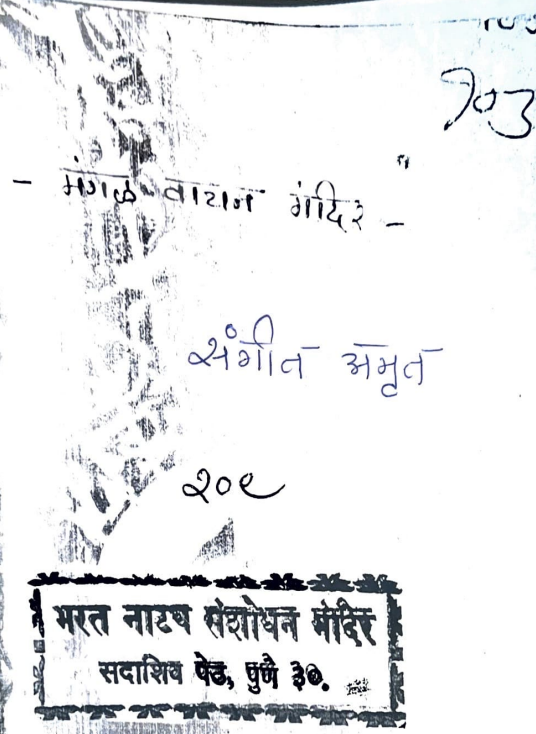 १०३
- मंगळ वाचन मंदिर -
संगीत अमृत
२०९
भरत नाट्य संशोधन मंदिर
सदाशिव पेठ, पुणे ३०.